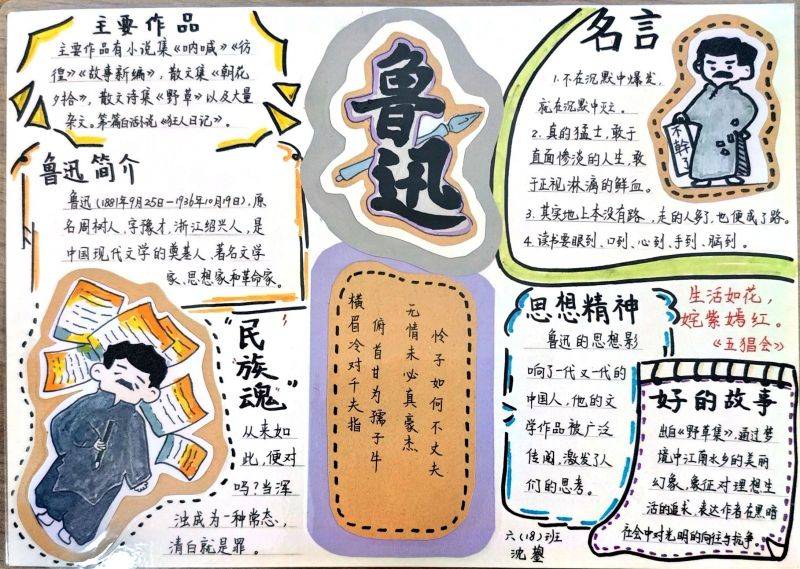 主要作品
主要作品有小说集《呐喊》《彷
徨》《故事新编》，散文集《朝花
夕拾》，散文诗集《野草》以及大量
杂文。第一篇白话说《狂人日记》。
鲁迅简介
鲁迅(1881年9月25日-1936年10月19日)，原
名周树人，字豫才，浙江绍兴人，是
中国现代文学的奠基人，著名文学
家、思想家和革命家。
"民族魂"
从来如
此，便对
吗？当浑
浊成为一种常态，
清白就是罪。
鲁迅
无情未必真豪杰
怜子如何不丈夫
横眉冷对千夫指
俯首甘为孺子牛
名言
1.不在沉默中爆发，
就在沉默中灭亡。
2.真的猛士，敢于
直面惨淡的人生，敢
于正视淋漓的鲜血。
3.其实地上本没有路，走的人多了，也便成了路。
4.读书要眼到、口到、心到、手到、脑到。
不
幹
了
思想精神
鲁迅的思想影
响了一代又一代的
中国人，他的文
学作品被广泛
传阅，激发了人
们的思考。
生活如花，
姹紫嫣红。
《五猖会》
好的故事
出自《野草集》，通过梦
境中江南水乡的美丽
幻象，象征对理想生
活的追求，表达作者在黑暗
社会中对光明的向往与抗争。
六(18)班
沈鋆